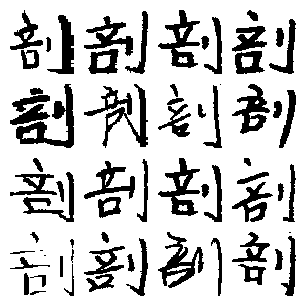 剖剖剖剖
剖剖剖剖
剖剖剖剖
剖剖剖剖